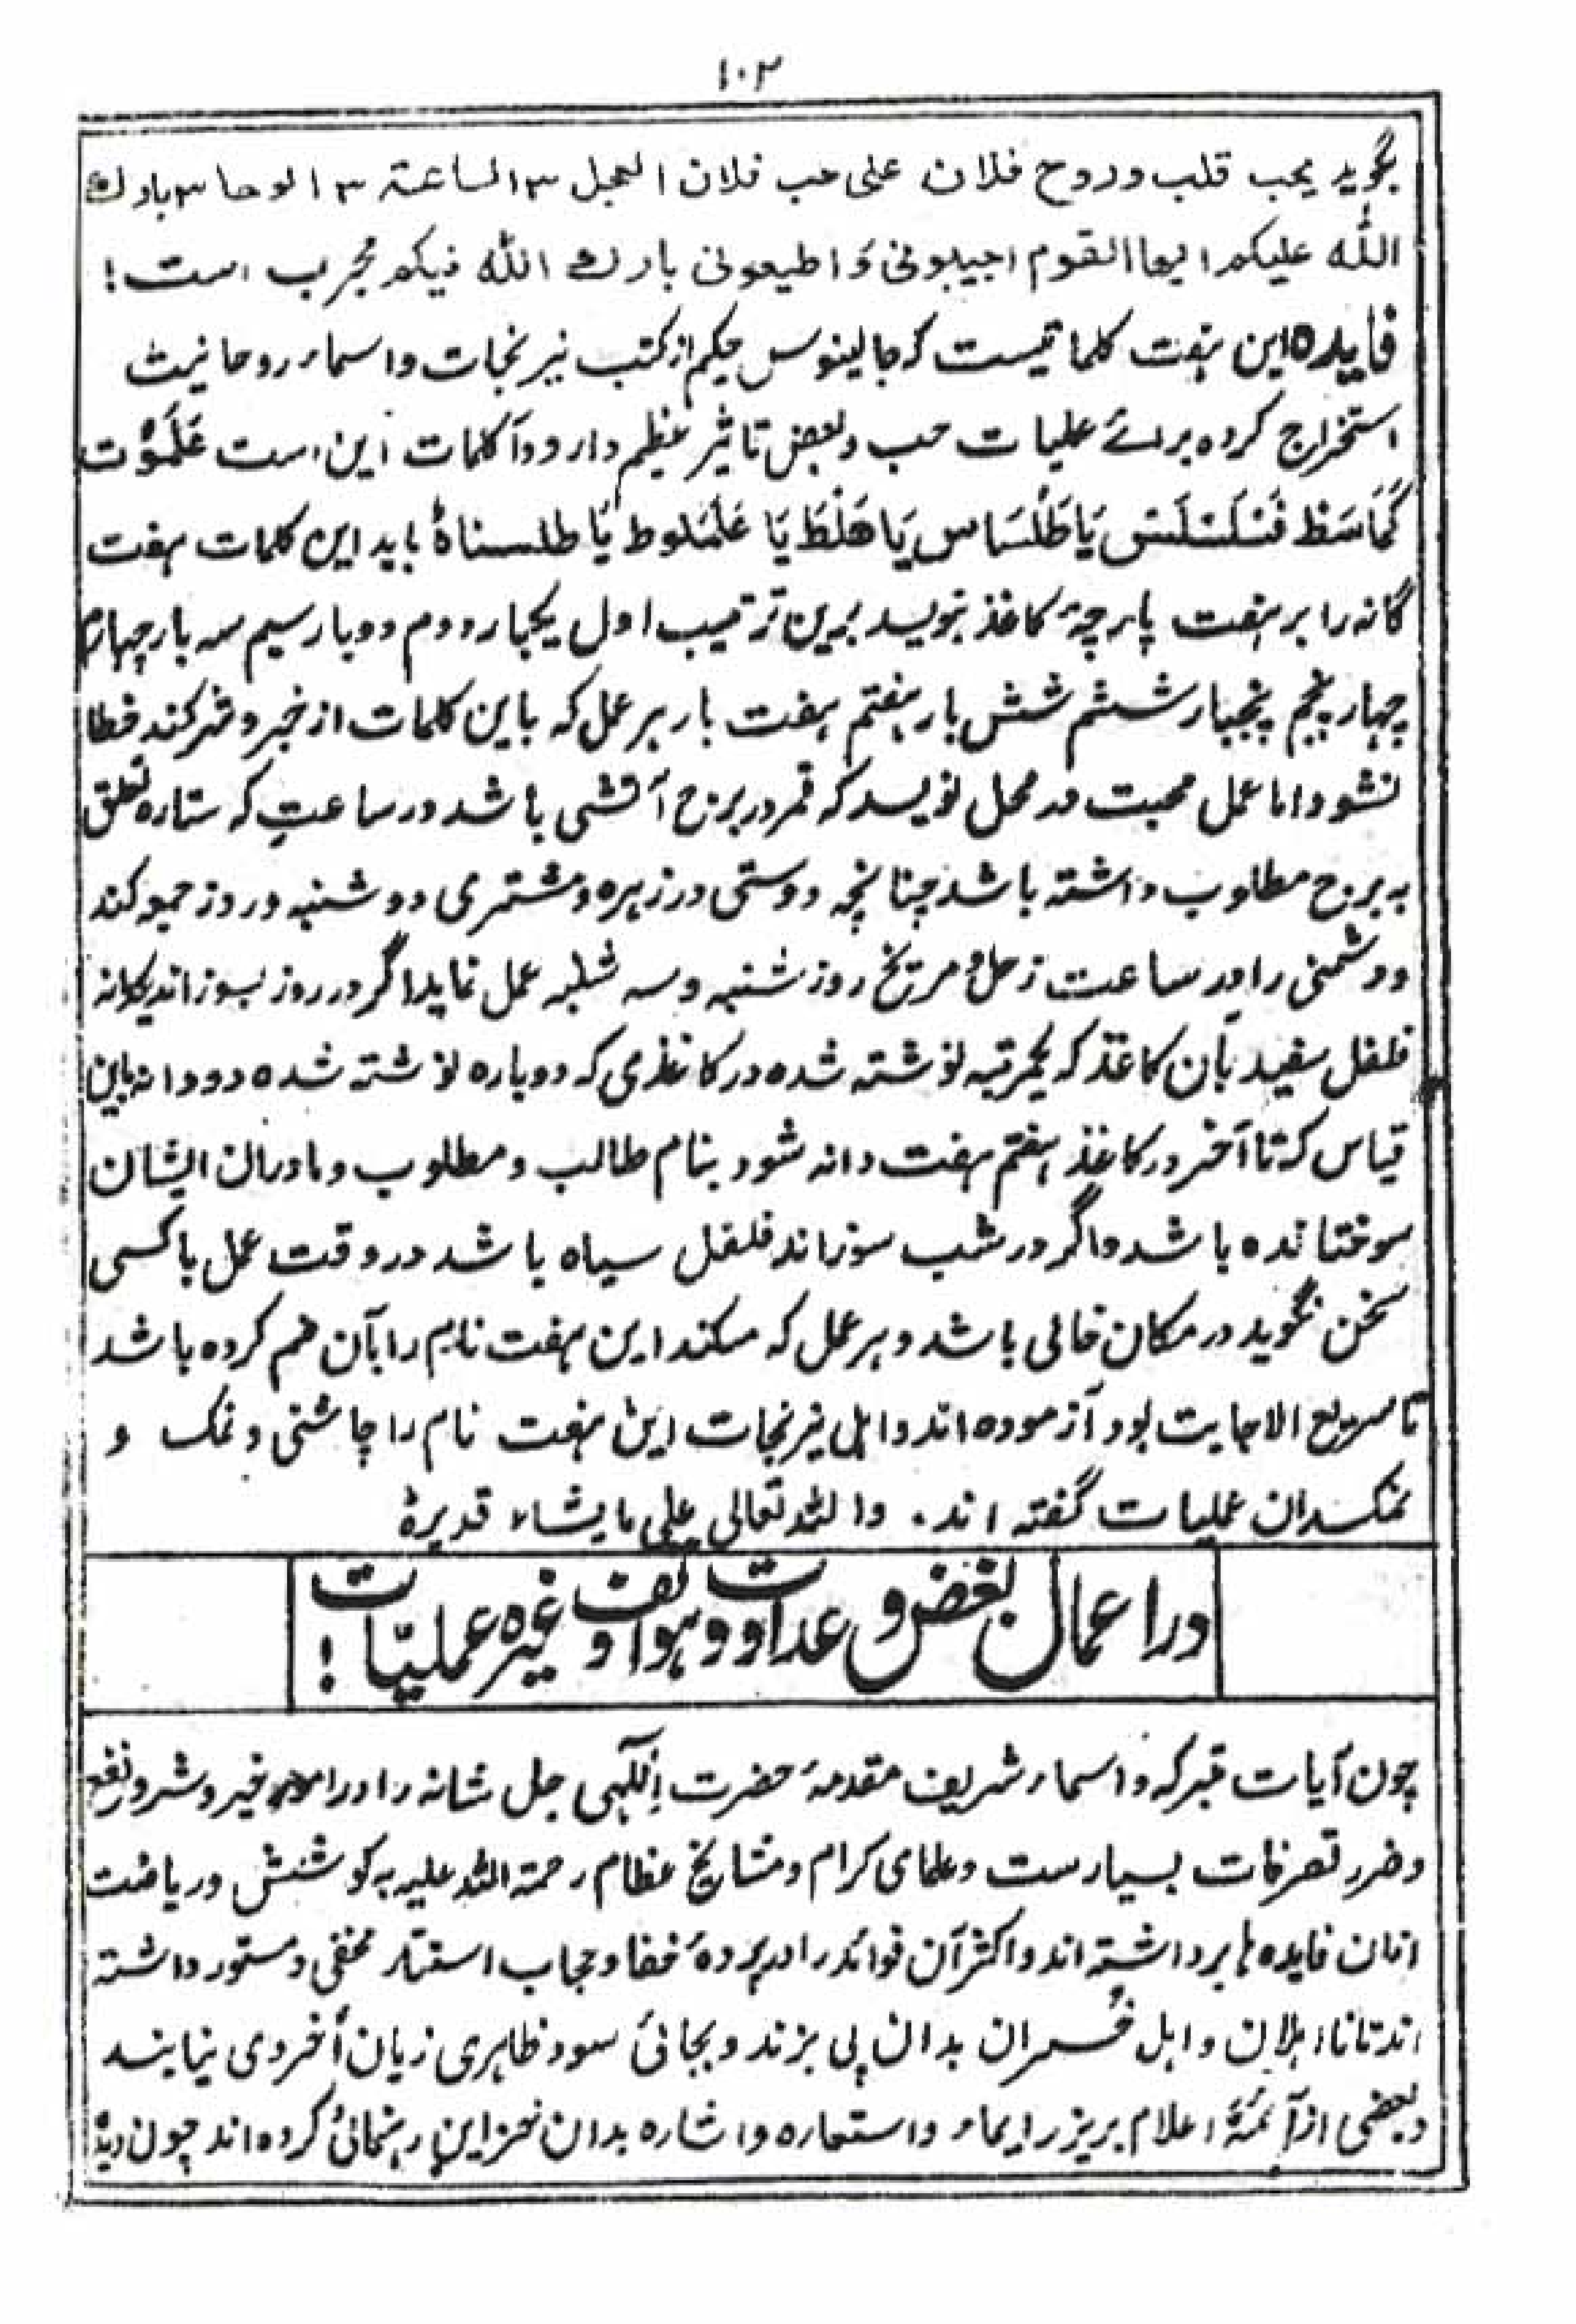 ۱۰۲
بگوید یحب قلب وروح فلان علی حب فلان العجل ۳ الساعتہ ۳ الوحا ۳ بارك
الله علیکم ایها القوم اجیبونی وَاطیعونی بارك الله فیکم مجرب است!
فایدہ این ہفت کلماتیست کہ جالینوس حکیم از کتب نیرنجات واسماء روحانیت
استخراج کردہ برائے عملیات حب وبغض تاثیر عظیم دارد وآ کلمات این است
یَاطَلْسَاس یَا هَلْطَ یَا عَلْمَلوط یَا طلسناهٗ باید این کلمات ہفت
گانہ را بر ہفت پارچۂ کاغذ بنویسد برین ترتیب اول یکبار دوم دوبار سیم سہ بار چہارم
چہار پنجم پنجبار ششم شش بار ہفتم ہفت بار ہر عمل کہ باین کلمات از خیر وشر کند خطا
نشود اما عمل محبت در محل نویسد کہ قمر در برج آتشی باشد در ساعتِ کہ ستارہ تعلق
بہ برج مطلوب داشتہ باشد چنانچہ دوستی در زہرہ ومشتری دوشنبہ وروز جمعہ کند
ودشمنی را در ساعت زحل و مریخ روز شنبہ وسہ شنبہ عمل نماید اگر در روز بسوزاند یکدانہ
فلفل سفید بآن کاغذ کہ یکمرتبہ نوشتہ شدہ در کاغذی کہ دوبارہ نوشتہ شدہ دو دانہ باین
قیاس کہ تا آخر در کاغذ ہفتم ہفت دانہ شود بنام طالب ومطلوب ومادران ایشان
سوختاندہ باشد واگر در شب سوزاند فلفل سیاہ باشد در وقت عمل باکسی
سخن نگوید در مکان خالی باشد وہر عمل کہ میکند این ہفت نام را بآن ضم کردہ باشد
تا سریع الاجابت بود آزمودہ اند واہل نیرنجات این ہفت نام را چاشنی ونمک و
نمکدان عملیات گفتہ اند. واللہ تعالی علی مایشاء قدیرهٗ
در اعمال بغض و عداوت و ہواتف و غیرہ عملیّات!
چون آیات متبرکہ واسماء شریف مقدمۂ حضرت اِلٰہی جل شانہ را در امور خیر وشر ونفع
وضرر تصرفات بسیار ست وعلمای کرام ومشایخ عظام رحمة اللہ علیہ بہ کوشش وریاضت
ازان فایدہ ہا برداشتہ اند واکثر آن فوائد را در پردۂ خفا وحجاب استتار مخفی ومستور داشتہ
اند تا نااہلان واہل خسران بدان پی نبرند وبجائ سود ظاہری زیان اُخروی ننمایند
وبعضی از آئمۂ اعلام برمز ایماء واستعارہ واشارہ بدان رہنمائ کردہ اند چون